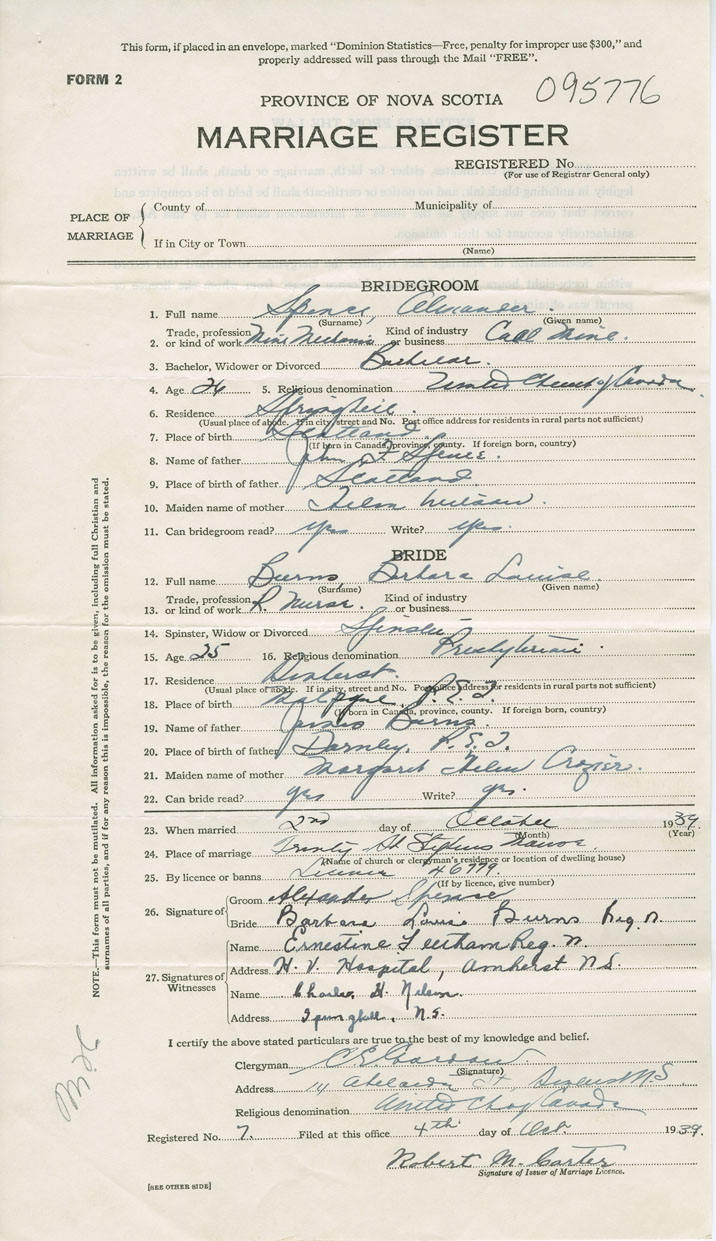 This form, if placed in an envelope, marked "Dominion Statistics—Free, penalty for improper use $300," and
properly addressed will pass through the Mail "FREE".
FORM 2
095776
PROVINCE OF NOVA SCOTIA
MARRIAGE REGISTER
REGISTERED No.
(For use of Registrar General only)
PLACE OF MARRIAGE
County of Municipality of
If in City or Town
(Name)
BRIDEGROOM
1. Full name Spence, Alexander.
(Surname) (Given name)
2. Trade, profession or kind of work Mine Mechanic Kind of industry or business Coal Mine.
3. Bachelor, Widower or Divorced Bachelor.
4. Age 26 5. Religious denomination United Church of Canada.
6. Residence Springhill.
(Usual place of abode. If in city, street and No. Post office address for residents in rural parts not sufficient)
7. Place of birth Scotland
(If born in Canada, province, county. If foreign born, country)
8. Name of father John F Spence.
9. Place of birth of father Scotland
10. Maiden name of mother Wilson.
11. Can bridegroom read? yes Write? yes.
BRIDE
12. Full name Burns, Barbara Louise.
(Surname) (Given name)
13. Trade, profession or kind of work R. Nurse. Kind of industry or business
14. Spinster, Widow or Divorced Spinster
15. Age 25 16. Religious denomination Presbyterian.
17. Residence Amherst.
(Usual place of abode. If in city, street and No. Post office address for residents in rural parts not sufficient)
18. Place of birth Malpeque P.E.I.
(If born in Canada, province, county. If foreign born, country)
19. Name of father James Burns.
20. Place of birth of father Darnley, P.E.I.
21. Maiden name of mother Margaret Helen Crozier.
22. Can bride read? yes Write? yes.
23. When married 2nd day of October 1939.
(Month) (Year)
24. Place of marriage Trinity St Stephens Manse.
(Name of church or clergyman's residence or location of dwelling house)
25. By licence or banns License 46779.
(If by licence, give number)
26. Signature of
Groom Alexander Spence
Bride Barbara Louise Burns Reg. N.
27. Signatures of Witnesses
Name Ernestine Reg. N.
Address H. V. Hospital, Amherst N.S.
Name Charles H. Nelson.
Address Springhill, N.S.
I certify the above stated particulars are true to the best of my knowledge and belief.
Clergyman C E
(Signature)
Address Adelaide St Amherst N.S.
Religious denomination United Ch of Canada
Registered No. 7. Filed at this office 4th day of Oct. 1939.
Robert M. Carter
Signature of Issuer of Marriage Licence.
[SEE OTHER SIDE]
NOTE.—This form must not be mutilated. All information asked for is to be given, including full Christian and
surnames of all parties, and if for any reason this is impossible, the reason for the omission must be stated.